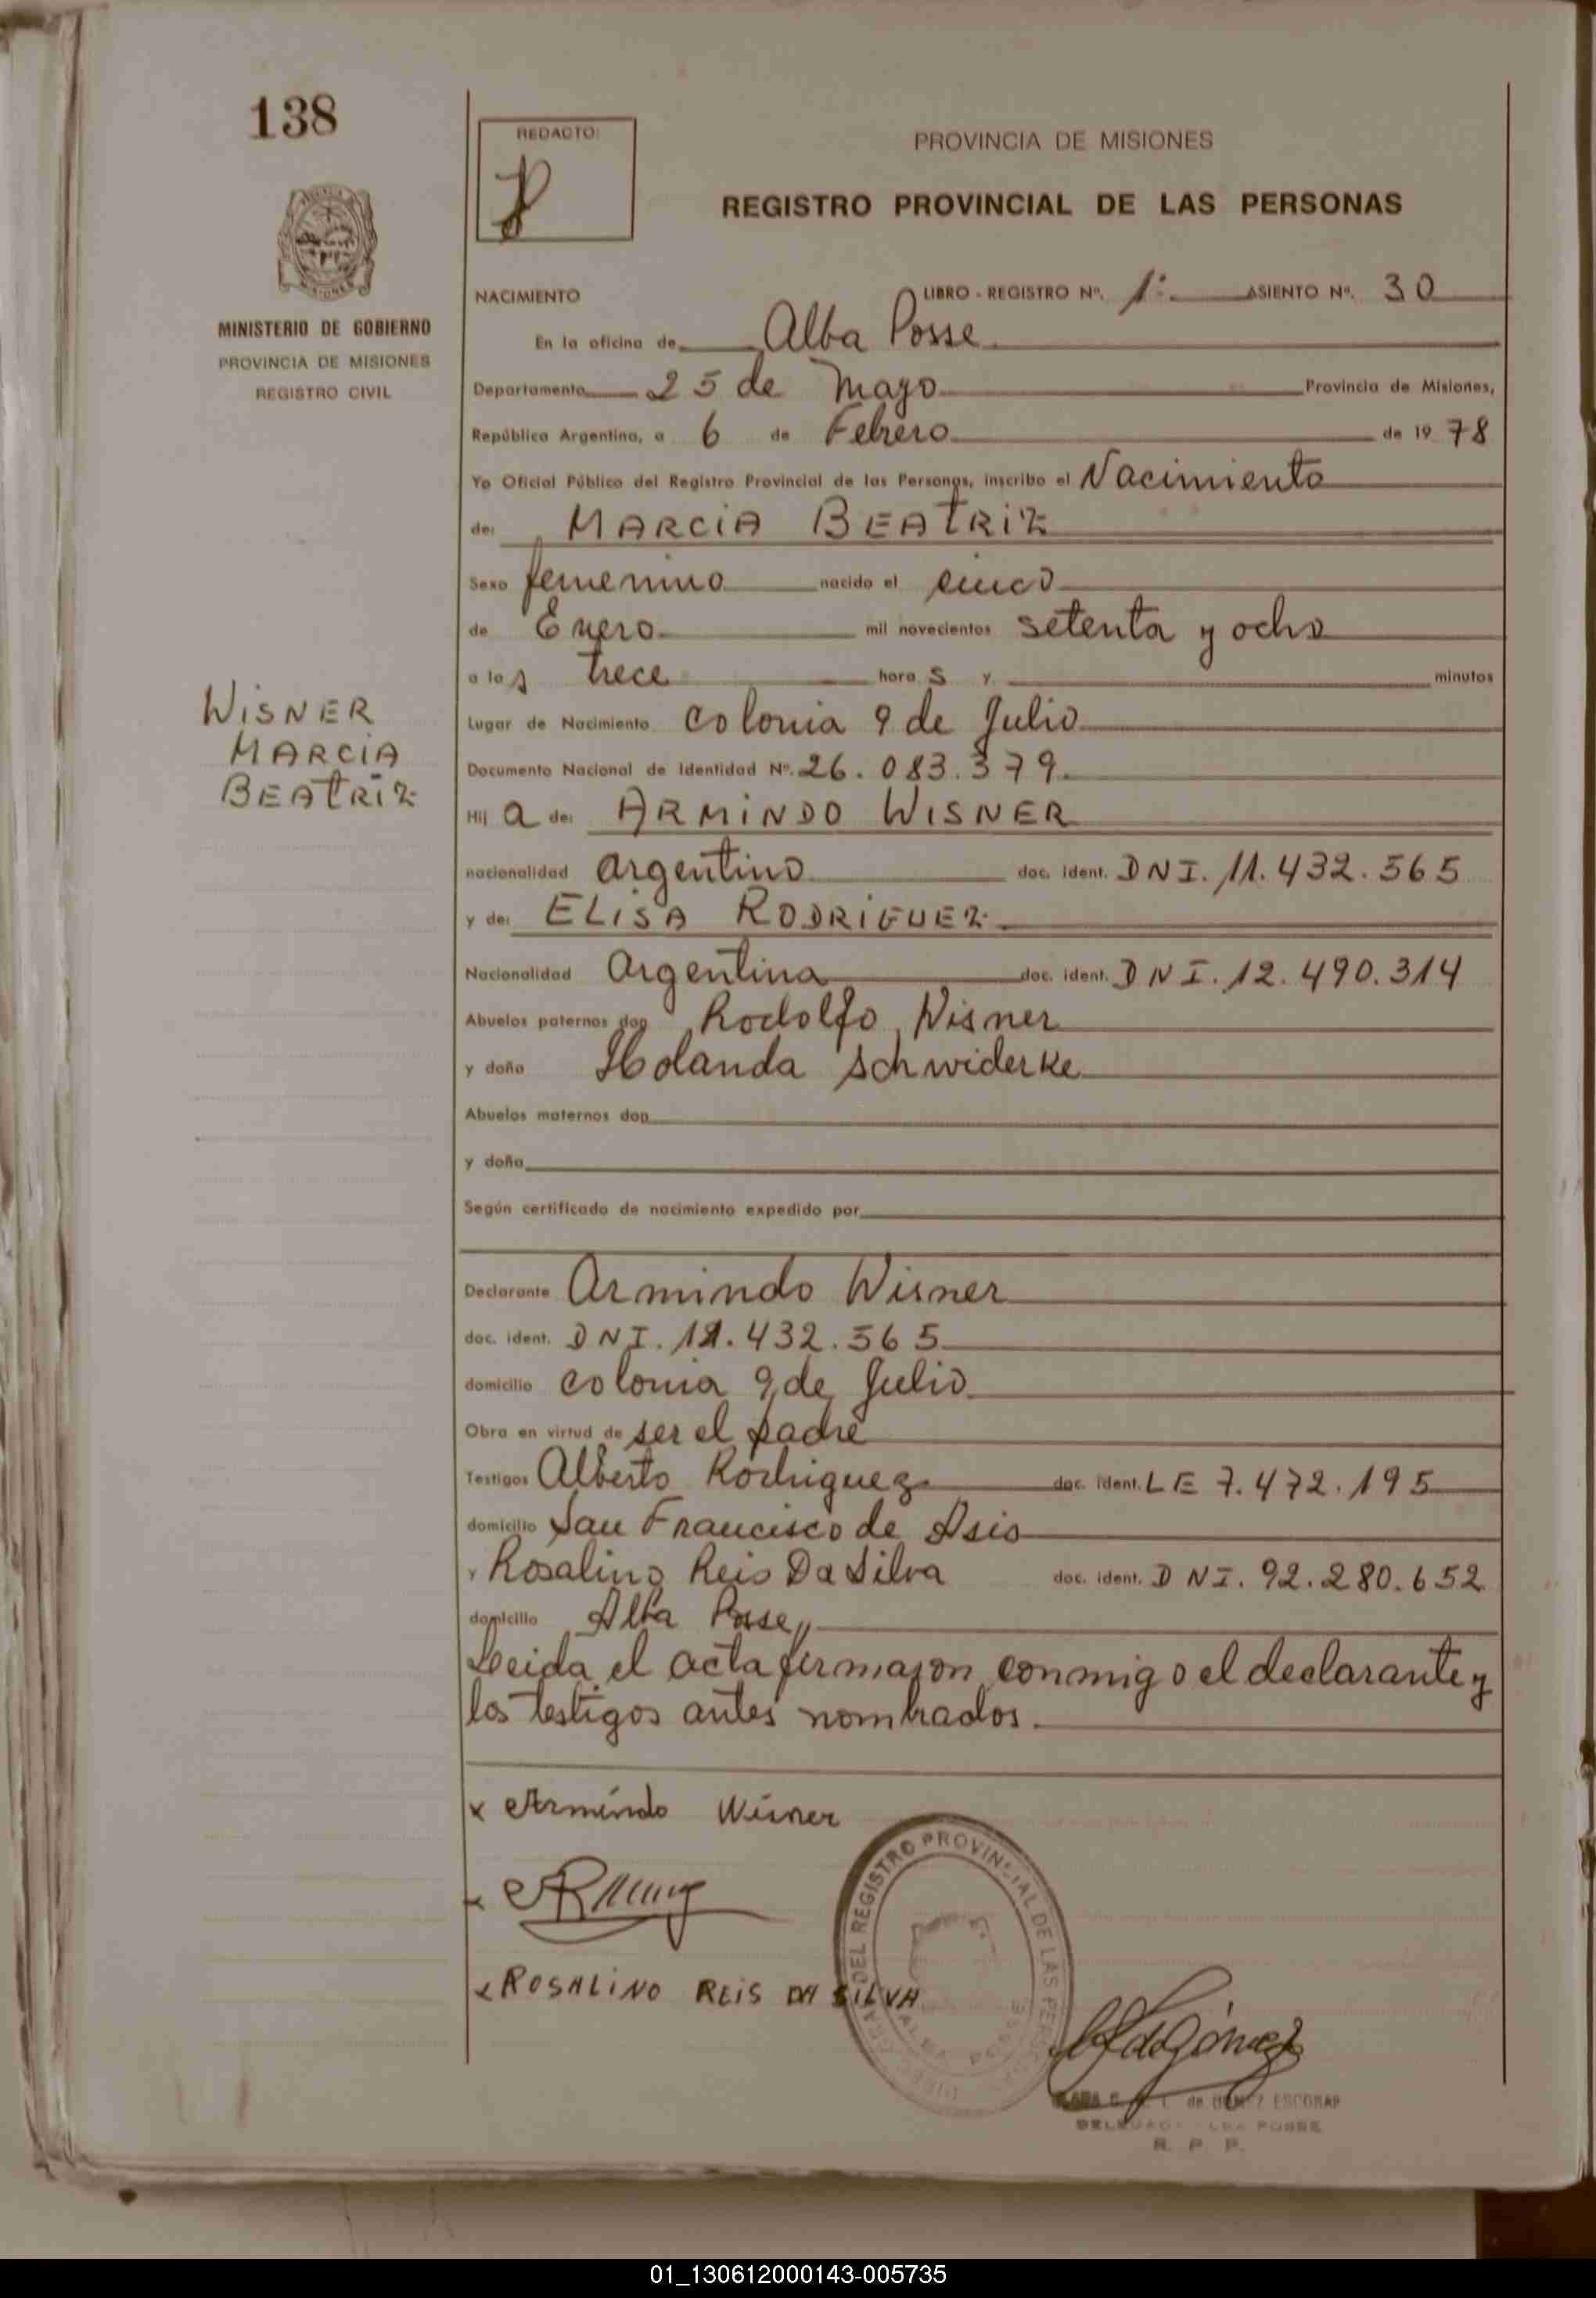 138
MINISTERIO DE GOBIERNO
PROVINCIA DE MISIONES
REGISTRO CIVIL
WISNER
MARCIA
BEATRIZ
REDACTO:
PROVINCIA DE MISIONES
REGISTRO PROVINCIAL DE LAS PERSONAS
NACIMIENTO LIBRO - REGISTRO Nº. 1º ASIENTO Nº. 30
En la oficina de Alba Posse
Departamento 25 de Mayo Provincia de Misiones,
República Argentina, a 6 de Febrero de 1978
Yo Oficial Público del Registro Provincial de las Personas, inscribo el Nacimiento
de: MARCIA BEATRIZ
Sexo femenino nacido el cinco
de Enero mil novecientos setenta y ocho
a las trece horas y minutos
Lugar de Nacimiento colonia 9 de Julio
Documento Nacional de Identidad Nº. 26.083.379
Hija de: ARMINDO WISNER
nacionalidad argentino doc. ident. DNI. 11.432.565
y de: ELISA RODRIGUEZ
Nacionalidad Argentina doc. ident. DNI. 12.490.314
Abuelos paternos don Rodolfo Wisner
y doña Holanda Schwiderke
Abuelos maternos don
y doña
Según certificado de nacimiento expedido por
Declarante Armindo Wisner
doc. ident. DNI. 11.432.565
domicilio colonia 9 de Julio
Obra en virtud de ser el padre
Testigos Alberto Rodriguez doc. ident. LE 7.472.195
domicilio San Francisco de Asis
y Rosalino Reis Da Silva doc. ident. DNI. 92.280.652
domicilio Alba Posse,,
Leida el acta firmaron conmigo el declarante y
los testigos antes nombrados.
x Armindo Wisner
x
x ROSALINO REIS DA SILVA
DEL REGISTRO PROVINCIAL DE LAS
de GOMEZ ESCOBAR
POSSE
R. P. P.
01_130612000143-005735